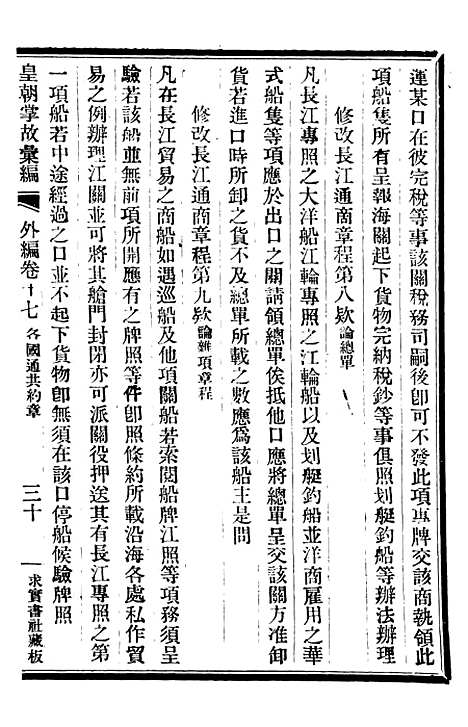 運某口在彼完稅等事該關稅務司嗣後卽可不發此項專牌交該商執領此
項船隻所有呈報海關起下貨物完納稅鈔等事俱照划艇釣船等辦法辦理
修改長江通商章程第八欵論總單
凡長江專照之大洋船江輪專照之江輪船以及划艇釣船並洋商雇用之華
式船隻等項應於出口之關請領總單俟抵他口應將總單呈交該關方准卸
貨若進口時所卸之貨不及總單所載之數應爲該船主是問
修改長江通商章程第九欵論雜項章程
凡在長江貿易之商船如遇巡船及他項關船若索閱船牌江照等項務須呈
驗若該船並無前項所開應有之牌照等件卽照條約所載沿海各處私作貿
易之例辦理江關並可將其艙門封閉亦可派關役押送其有長江專照之第
一項船若中途經過之口並不起下貨物卽無須在該口停船候驗牌照
皇朝掌故彙編 外編卷十七 各國通共約章 三十 求實書社藏板